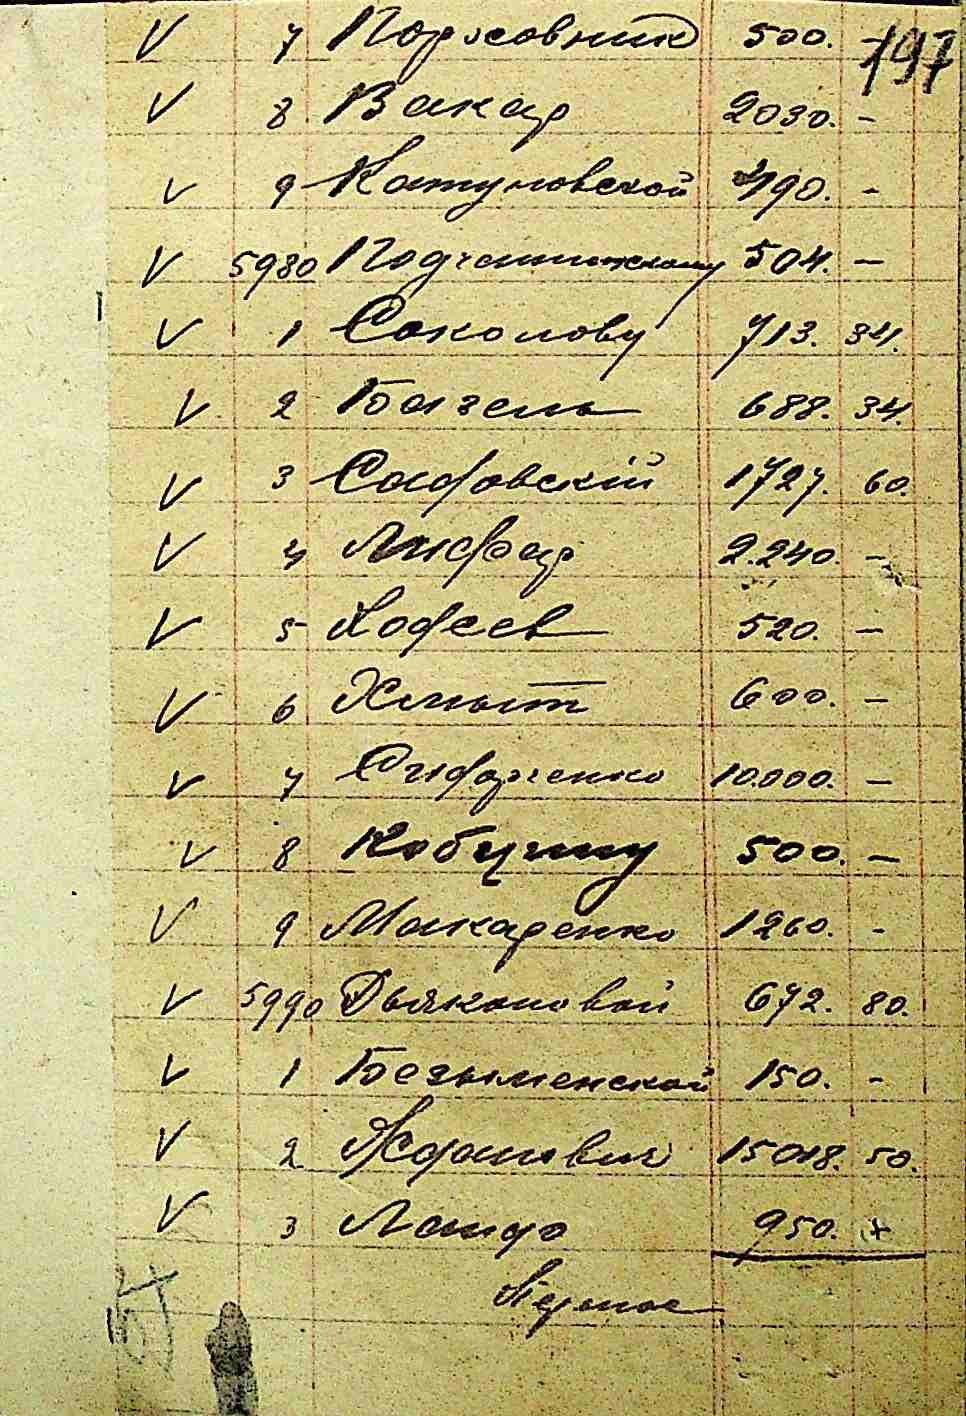 197
V 7 Порховник 500. -
V 8 Вакар 2030. -
V 9 Катуновской 490. -
V 5980 504. -
V 1 Соколову 713. 34.
V 2 Базель 688. 34.
V 3 Садовскій 1727. 60.
V 4 Лифар 2.240. -
V 5 520. -
V 6 600. -
V 7 10.000. -
V 8 500. -
V 9 Макаренко 1260. -
V 5990 Дьяконовой 672. 80.
V 1 Безыменской 150. -
V 2 Жданович 15018. 50.
V 3 Ландо 950.